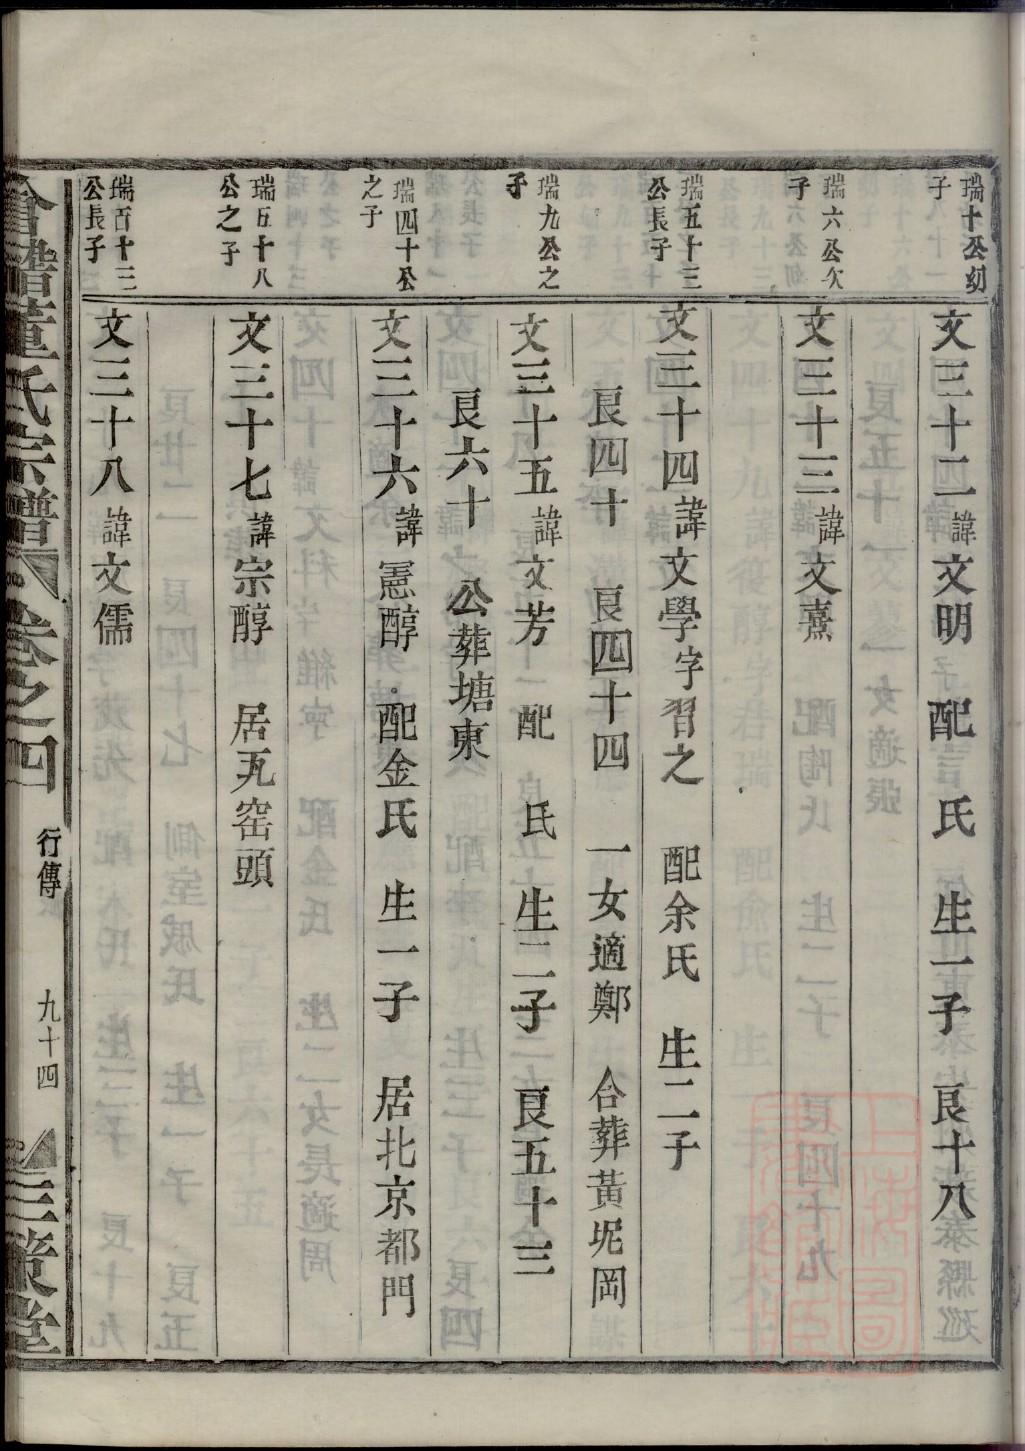 瑞十公幼
子
文三十二諱文明　配　氏　生一子　良十八
瑞六公次
子
文三十三諱文熹
瑞五十三
公長子
文三十四諱文學字習之　配余氏　生二子
良四十　良四十四　一女適鄭　合葬黃坭岡
瑞九公之
子
文三十五諱文芳　配　氏　生二子　良五十三
良六十　公葬塘東
瑞四十公
之子
文三十六諱憲醇　配金氏　生一子　居北京都門
瑞五十八
公之子
文三十七諱宗醇　居瓦窑頭
瑞百十三
公長子
文三十八諱文儒
董氏宗譜　卷之四　行傳　九十四　三策堂